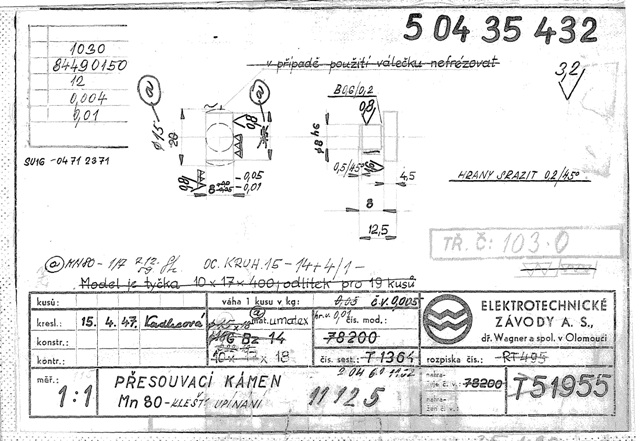 5 04 35 432
1030
84490150
12
0,004
0,01
SU16 -0471 2371
v případě použití válečku nefrézovat
3,2
B0,6/0,2
0,8
ⓐ
ⓐ
⌀15
20
0,8
0,8
8
-0,05
-0,01
0,5/45°
1,6
4,5
8
12,5
HRANY SRAZIT 0,2/45°
TŘ. Č: 103.0
ⓐ MN80 - 1/7
OC. KRUH. 15 - 14+4/1-
Model je tyčka 10 x 17 x 400; odlitek pro 19 kusů
kusů:
váha 1 kusu v kg:
0,05
č.v. 0,005
kresl.:
15. 4. 47.
Kadlecová
mat. umatex
hr.v. 0,01
čís. mod.:
konstr.:
Bz 14
78200
kontr.:
x 18
čís. sest.:
T 1364
ELEKTROTECHNICKÉ
ZÁVODY A. S.,
dř. Wagner a spol. v Olomouci
rozpiska čís.:
RT 495
měř.:
1:1
PŘESOUVACÍ KÁMEN
Mn 80 - KLEŠTĚ UPÍNANÍ
11 12 5
78200
T51955